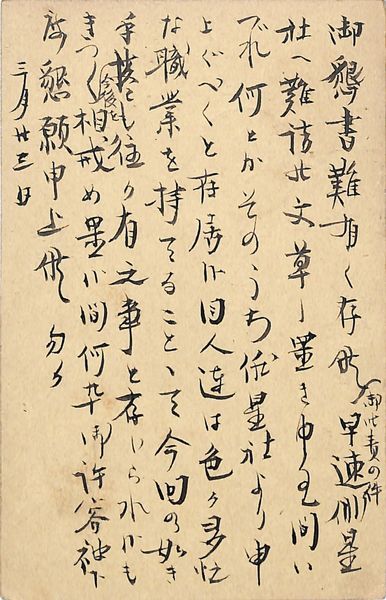 御懇書難有く存候 早速側星
御叱責の件
社へ難詰の文草し置き申候間
何とかそのうち側星社より申
上ぐべくと存居候 同人達は色々多忙
な職業を持てること 今回の如き
手扱も往々有之事と存いられ候も
きつく相戒め置候間何卒御許容
懇願申上候 匆々
三月廿三日